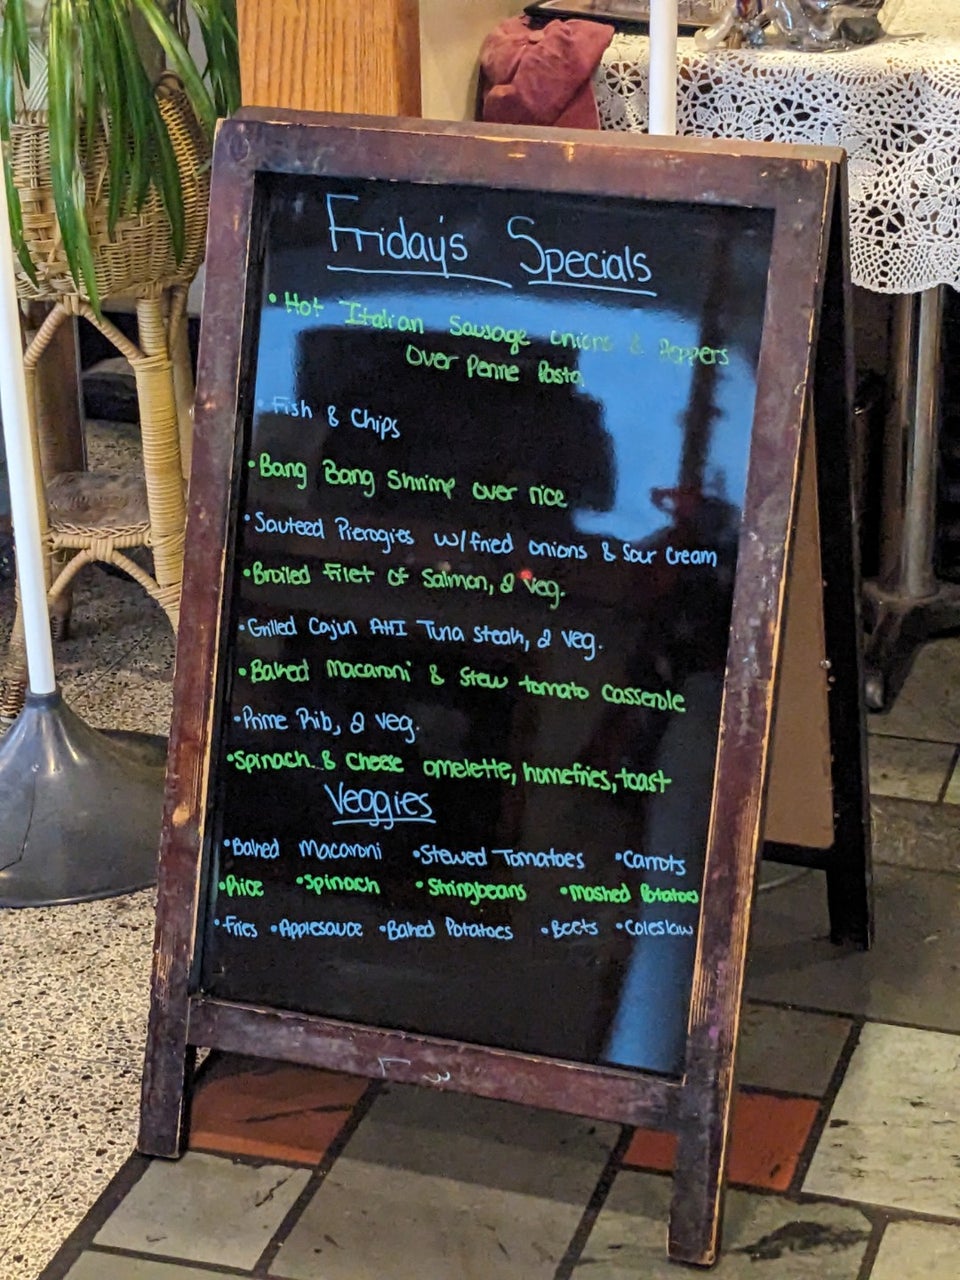 Friday's Specials
• Hot Italian Sausage onions & Peppers
Over Penne Pasta
• Fish & Chips
• Bang Bang Shrimp over rice
• Sauteed Pierogies w/fried onions & Sour Cream
• Broiled Filet of Salmon, 2 veg.
• Grilled Cajun AHI Tuna steak, 2 veg.
• Baked macaroni & Stew tomato casserole
• Prime Rib, 2 veg.
• Spinach & cheese omelette, homefries, toast
Veggies
• Baked Macaroni • Stewed Tomatoes • Carrots
• Rice • Spinach • Stringbeans • Mashed Potatoes
• Fries • Applesauce • Baked Potatoes • Beets • Coleslaw